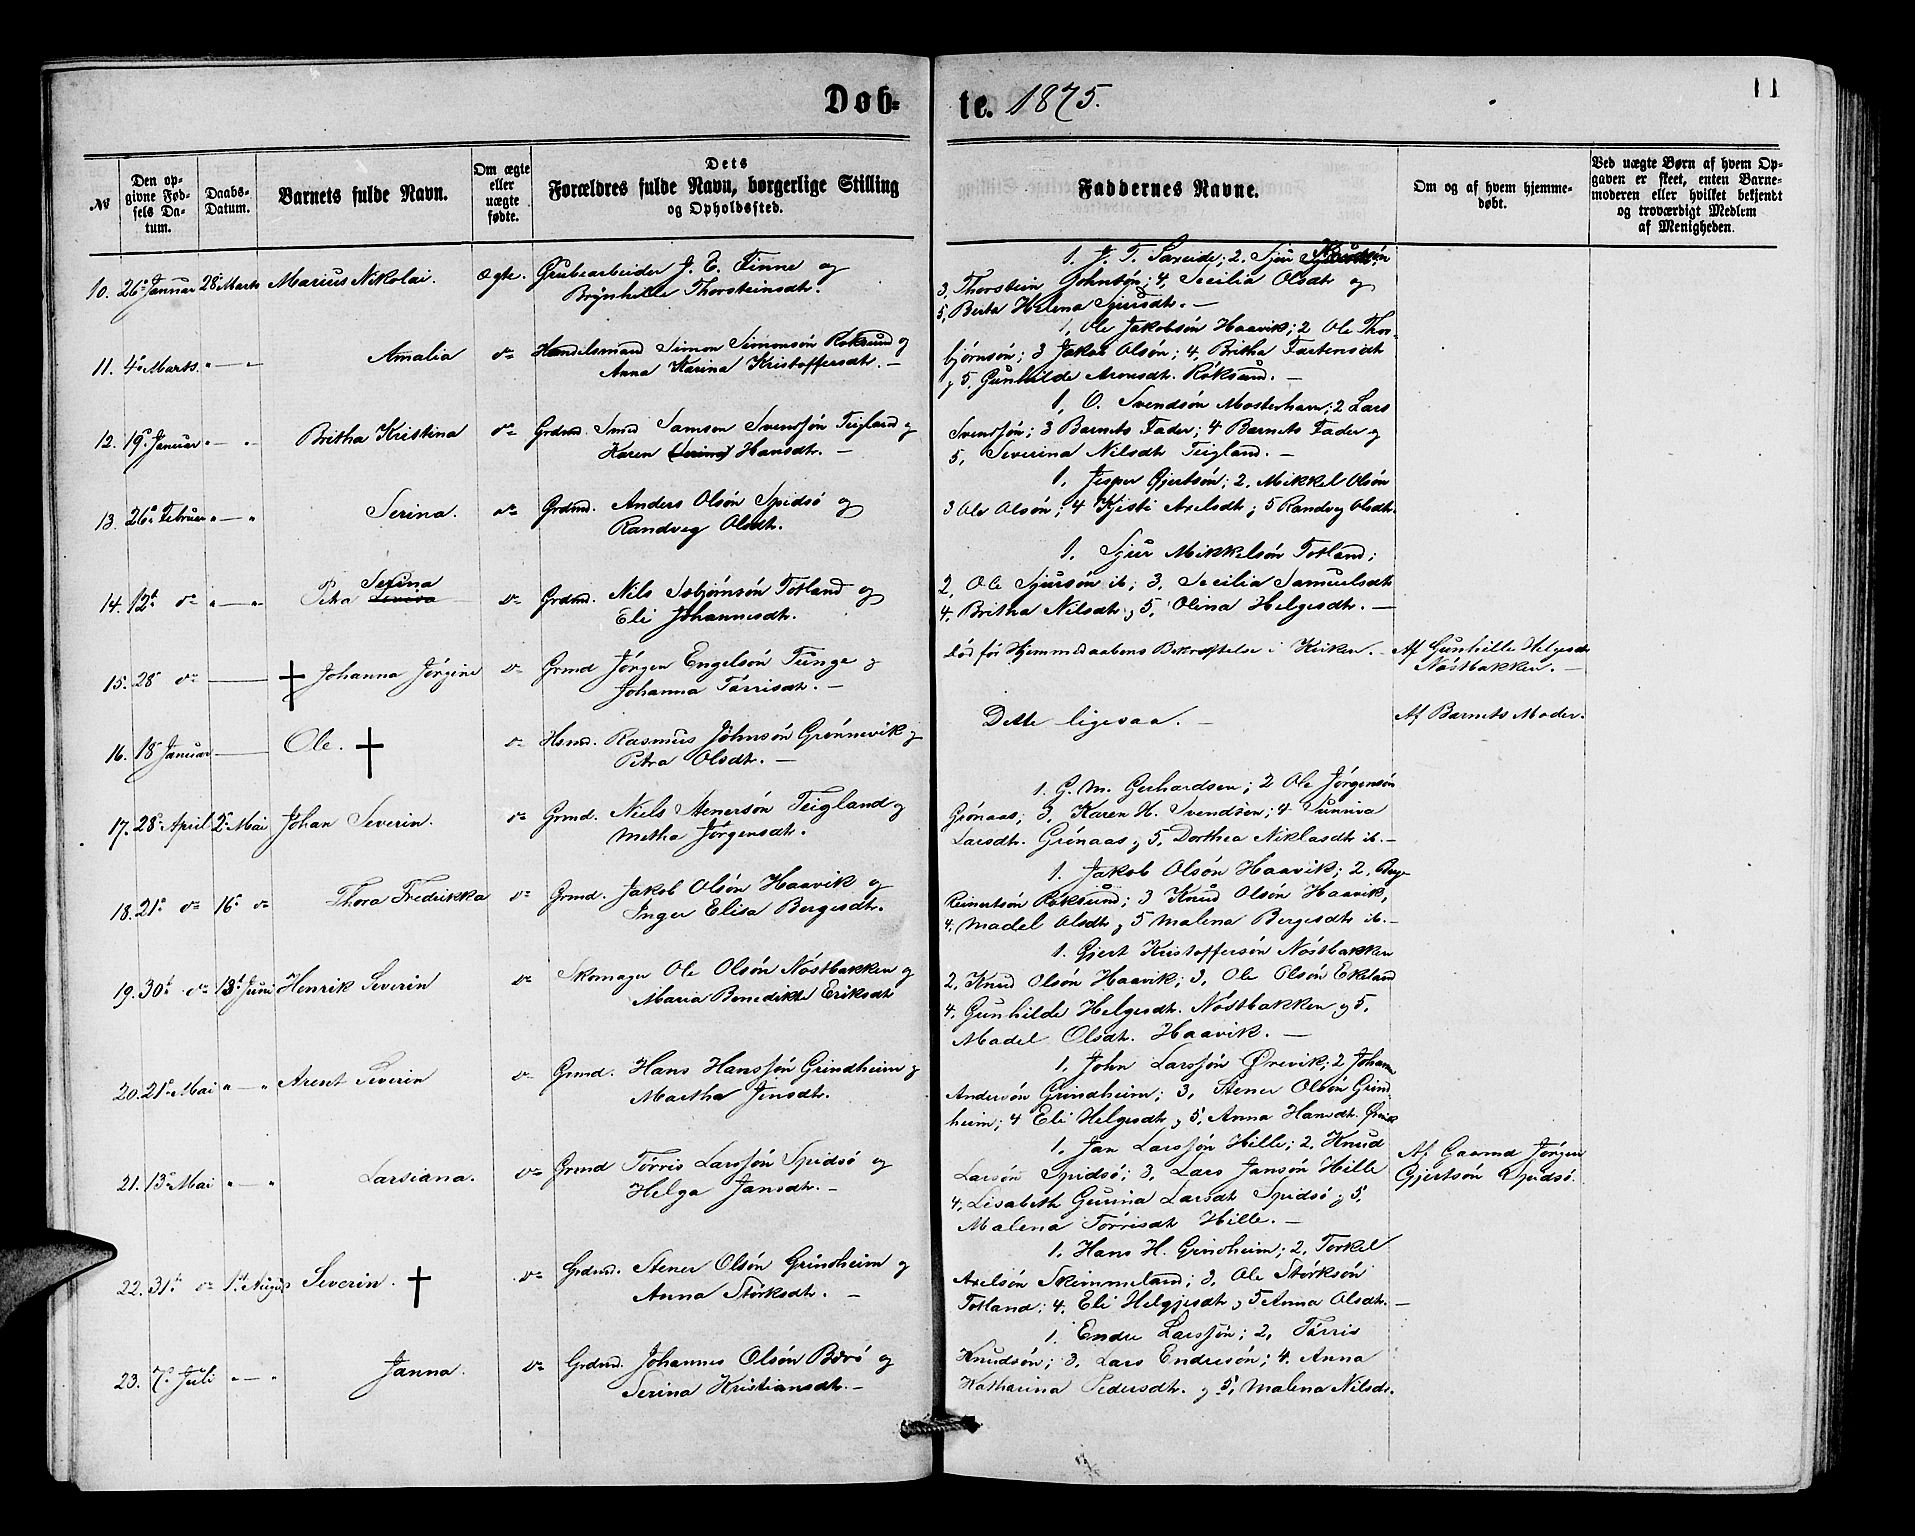 Døb-
te. 1875.
11
№
Den op-
givne Fød-
sels Da-
tum.
Daabs-
Datum.
Barnets fulde Navn.
Om ægte
eller
uægte
fødte.
Dets
Forældres fulde Navn, borgerlige Stilling
og Opholdssted.
Faddernes Navne.
Om og af hvem hjemme-
døbt.
Ved uægte Børn af hvem Op-
gaven er skeet, enten Barne-
moderen eller hvilket bekjendt
og troværdigt Medlem
af Menigheden.
10. 26 Januar 28 Marts Marius Nikolai. Ægte. Grubearbeider J. E. Finne og
Brynhilde Thorsteinsdt.
1. J. T. Sareide; 2. Sjur Knudsøn
3, Thorstein Johnsøn; 4, Secilia Olsdt og
5, Berta Helena Sjursdt. —
11. 4 Marts. " — " Amalia do Handelsmand Simon Simonsøn Røksund og
Anna Karina Kristoffersdt. —
1, Ole Jakobsøn Haavik; 2 Ole Thor-
bjørnsøn; 3 Jakob Olsøn; 4, Britha Fartensdt
og 5, Gunhilde Arnesdt. Røksund. —
12. 19 Januar " — " Britha Kristina do Grdmd. Smed Samson Svendsøn Teigland og
Karen Serina Hansdt. —
1, O. Svendsøn Mosterhavn; 2 Lars
Svendsøn; 3 Barnets Fader; 4 Barnets Fader og
5, Severina Nilsdt Teigland. —
13. 26 Februar " — " Serina. do Grdmd. Anders Olsøn Spidsø og
Randveg Olsdt.
1, Jesper Gjertsøn; 2, Mikkel Olsøn
3 Ole Olsøn; 4 Kjisti Axelsdt; 5 Randveg Olsdt.
14. 12 do " — " Petra Serina do Grdmd. Nils Asbjørnsøn Totland og
Eli Johannesdt.
1. Sjur Mikkelsøn Totland;
2, Ole Sjursøn ib; 3, Secilia Samuelsdt
4, Britha Nilsdt og 5, Olina Helgesdt. —
15. 28 do — † Johanna Jørgine do Grmd Jørgen Engelsøn Tunge og
Johanna Tørrisdt. —
død før Hjemmedaabens Bekræftelse i Kirken. — Af Gunhille Helgesdt
Nøstbakken. —
16. 18 Januar — Ole. † do Hsmd. Rasmus Johnsøn Grønnevik og
Petra Olsdt. —
Dette ligesaa. — Af Barnets Moder.
17. 28 April 2 Mai Johan Severin. do Grmd. Niels Stenersøn Teigland og
Metha Jørgensdt.
1. G. M. Gerhardsen; 2 Ole Jørgensøn
Grønaas; 3, Karen H. Svendsen; 4 Sunniva
Larsdt. Grønaas og 5, Dorthea Niklasdt ib. —
18. 21 do 16 do Thora Fredrikka do Grmd. Jakob Olsøn Haavik og
Inger Elisa Bergesdt.
1. Jakob Olsøn Haavik; 2, Berge
Reinertsøn Røksund; 3 Knud Olsøn Haavik,
4, Madel Olsdt og 5 Malena Bergesdt ib. —
19. 30 do 13 Juni Henrik Severin do Skomager Ole Olsøn Nøstbakken og
Maria Benedikte Eriksdt
1. Gjert Kristoffersøn Nøstbakken
2, Knud Olsøn Haavik; 3, Ole Olsøn Ekeland
4. Gunhilde Helgesdt. Nøstbakken og 5,
Madel Olsdt. Haavik. —
20. 21 Mai " — " Arent Severin do Grmd. Hans Hanssøn Grindheim og
Martha Jensdt.
1, John Larssøn Ørevik; 2 Johan
Andersøn Grindheim; 3, Stener Olsøn Grind-
heim; 4 Eli Helgesdt og 5, Anna Hansdt. Ørevik
21. 13 Mai " — " Larsiana. do Grmd Tørris Larssøn Spidsø og
Helga Jansdt. —
1, Jan Larssøn Hille; 2, Knud
Larsøn Spidsø; 3, Lars Jansøn Hille
4, Lisabeth Gurina Larsdt Spidsø og 5,
Malena Tørrisdt Hille. —
Af Gaarmd Jørgen
Gjertsøn Spidsø.
22. 31 do 1 August Severin. † do Grdmd. Stener Olsøn Grindheim og
Anna Størksdt. —
1. Hans H. Grindheim; 2, Torkel
Axelsøn Skimmeland; 3, Ole Størksøn
Totland; 4. Eli Helgjesdt og 5 Anna Olsdt. —
23. 7 Juli " — " Janna. do Grdmd. Johannes Olsøn Børø og
Serina Kristiansdt. —
1. Endre Larssøn; 2, Tørris
Knudsøn; 3, Lars Endresøn; 4. Anna
Katharina Pedersdt. og 5, Malena Nilsdt.